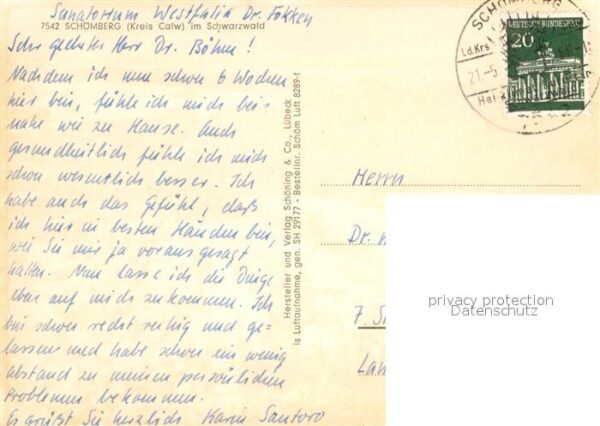 Sanatorium Westfalia Dr. Fokken
7542 SCHÖMBERG (Kreis Calw) im Schwarzwald
Sehr geehrter Herr Dr. Böhm!
Nachdem ich nun schon 6 Wochen
hier bin, fühle ich mich bei-
nahe wie zu Hause. Auch
gesundheitlich fühle ich mich
schon wesentlich besser. Ich
habe auch das Gefühl, daß
ich hier in besten Händen bin,
wie Sie mir ja vorausgesagt
hatten. Nun lasse ich die Dinge
eben auf mich zukommen. Ich
bin schon recht ruhig und ge-
lassen und habe schon ein wenig
abstand zu meinen persönlichen
Problemen bekommen.
Es grüßt Sie herzlich Karin Santoro
Hersteller und Verlag Schöning & Co., Lübeck
is Luftaufnahme, gen. SH 29177 - Bestellnr. Schöm Luft 8289-1
SCHÖMBERG
Ld.Krs
21.-5
DEUTSCHE BUNDESPOST
20
Herrn
Dr.
7.
privacy protection
Datenschutz